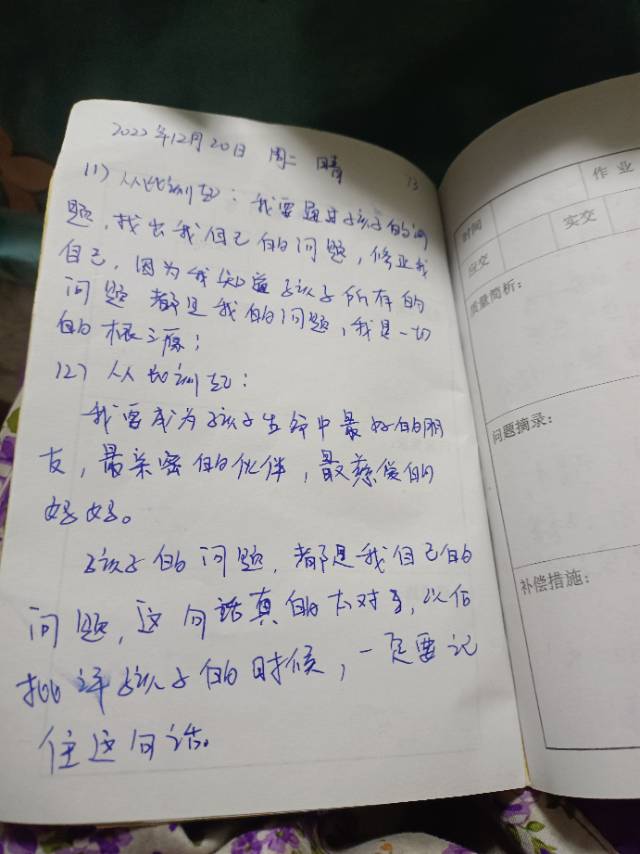 2022年12月20日 周二 晴
13
(1) 从此刻起：我要通过孩子的问
题，找出我自己的问题，修正我
自己，因为我知道孩子所有的
问题都是我的问题，我是一切
的根源；
(2) 从此刻起：
我要成为孩子生命中最好的朋
友，最亲密的伙伴，最慈爱的
妈妈。
孩子的问题，都是我自己的
问题，这句话真的太对了，以后
批评孩子的时候，一定要记
住这句话。
作业
时间
实交
应交
质量简析：
问题摘录：
补偿措施：